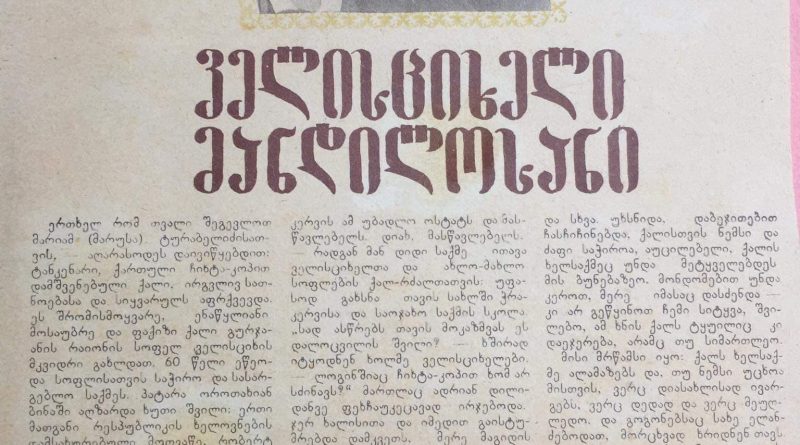 ველისციხელი
მანდილოსანი
ერთხელ რომ თვალი შეგევლოთ
მარიამ (მარუსა) ტურაბელიძისათ-
ვის, აღარასოდეს დაივიწყებდით:
ტანკენარი, ქართული ჩიხტა-კოპით
დამშვენებული ქალი, ირგვლივ სათ-
ნოებასა და სიყვარულს აფრქვევდა.
ეს შრომისმოყვარე, ენაწყლიანი
მოსაუბრე და ფაქიზი ქალი გურჯა-
ანის რაიონის სოფელ ველისციხის
მკვიდრი გახლდათ. 60 წელი ეწეო-
და სოფლისათვის საჭირო და სასარ-
გებლო საქმეს. პატარა ოროთახიან
ბინაში აღზარდა ხუთი შვილი: ერთი
მათგანი რესპუბლიკის ხელოვნების
დამსახურებული მოღვაწე, რობერტ
კერვის ამ უბადლო ოსტატს და მას-
წავლებელს. დიახ, მასწავლებელს.
— რადგან მან დიდი საქმე ითავა
ველისციხელთა და ახლო-მახლო
სოფლების ქალ-რძალთათვის: უფა-
სოდ გახსნა თავის სახლში ჭრა-
კერვისა და საოჯახო საქმის სკოლა.
„სად ასწრებს თავის მოკაზმვას ეს
დალოცვილის შვილი? — ხშირად
იტყოდნენ ხოლმე ველისციხელები.
— ლოგინშიაც ჩიხტა-კოპით ხომ არ
სძინავს?“ მართლაც ადრიან დილი-
დანვე ფეხჩაუკეცავად ირჯებოდა.
ჯერ ხალისითა და იმედით გაისტუ-
მრებდა დამკვეთს. მერე მაგიდის
და სხვა. უხსნიდა, დაბეჯითებით
ჩასჩიჩინებდა, ქალისთვის ნემსი და
ძაფი საჭიროა, აუცილებელი, ქალის
ხელსაქმეც უნდა მეტყველებდეს
მის ბუნებაზეო. მონდომებით უნდა
კეროთ, მერე იმასაც დასძენდა —
კი არ გეწყინოთ ჩემი სიტყვა, შვი-
ლებო, ამ ხნის ქალს ტყუილიც კი
დაეჯერება, არამც თუ სიმართლეო.
მისი მრწამსი იყო: ქალს ხელსაქ-
მე ალამაზებს და, თუ ნემსი უცხოა
მისთვის, ვერც დიასახლისად ივარ-
გებს, ვერც დედად და ვერც მეუღ-
ლედო. და გოგონებსაც სახე ელან-
ძებოდათ, მორცხვად ხრიდნენ თავს